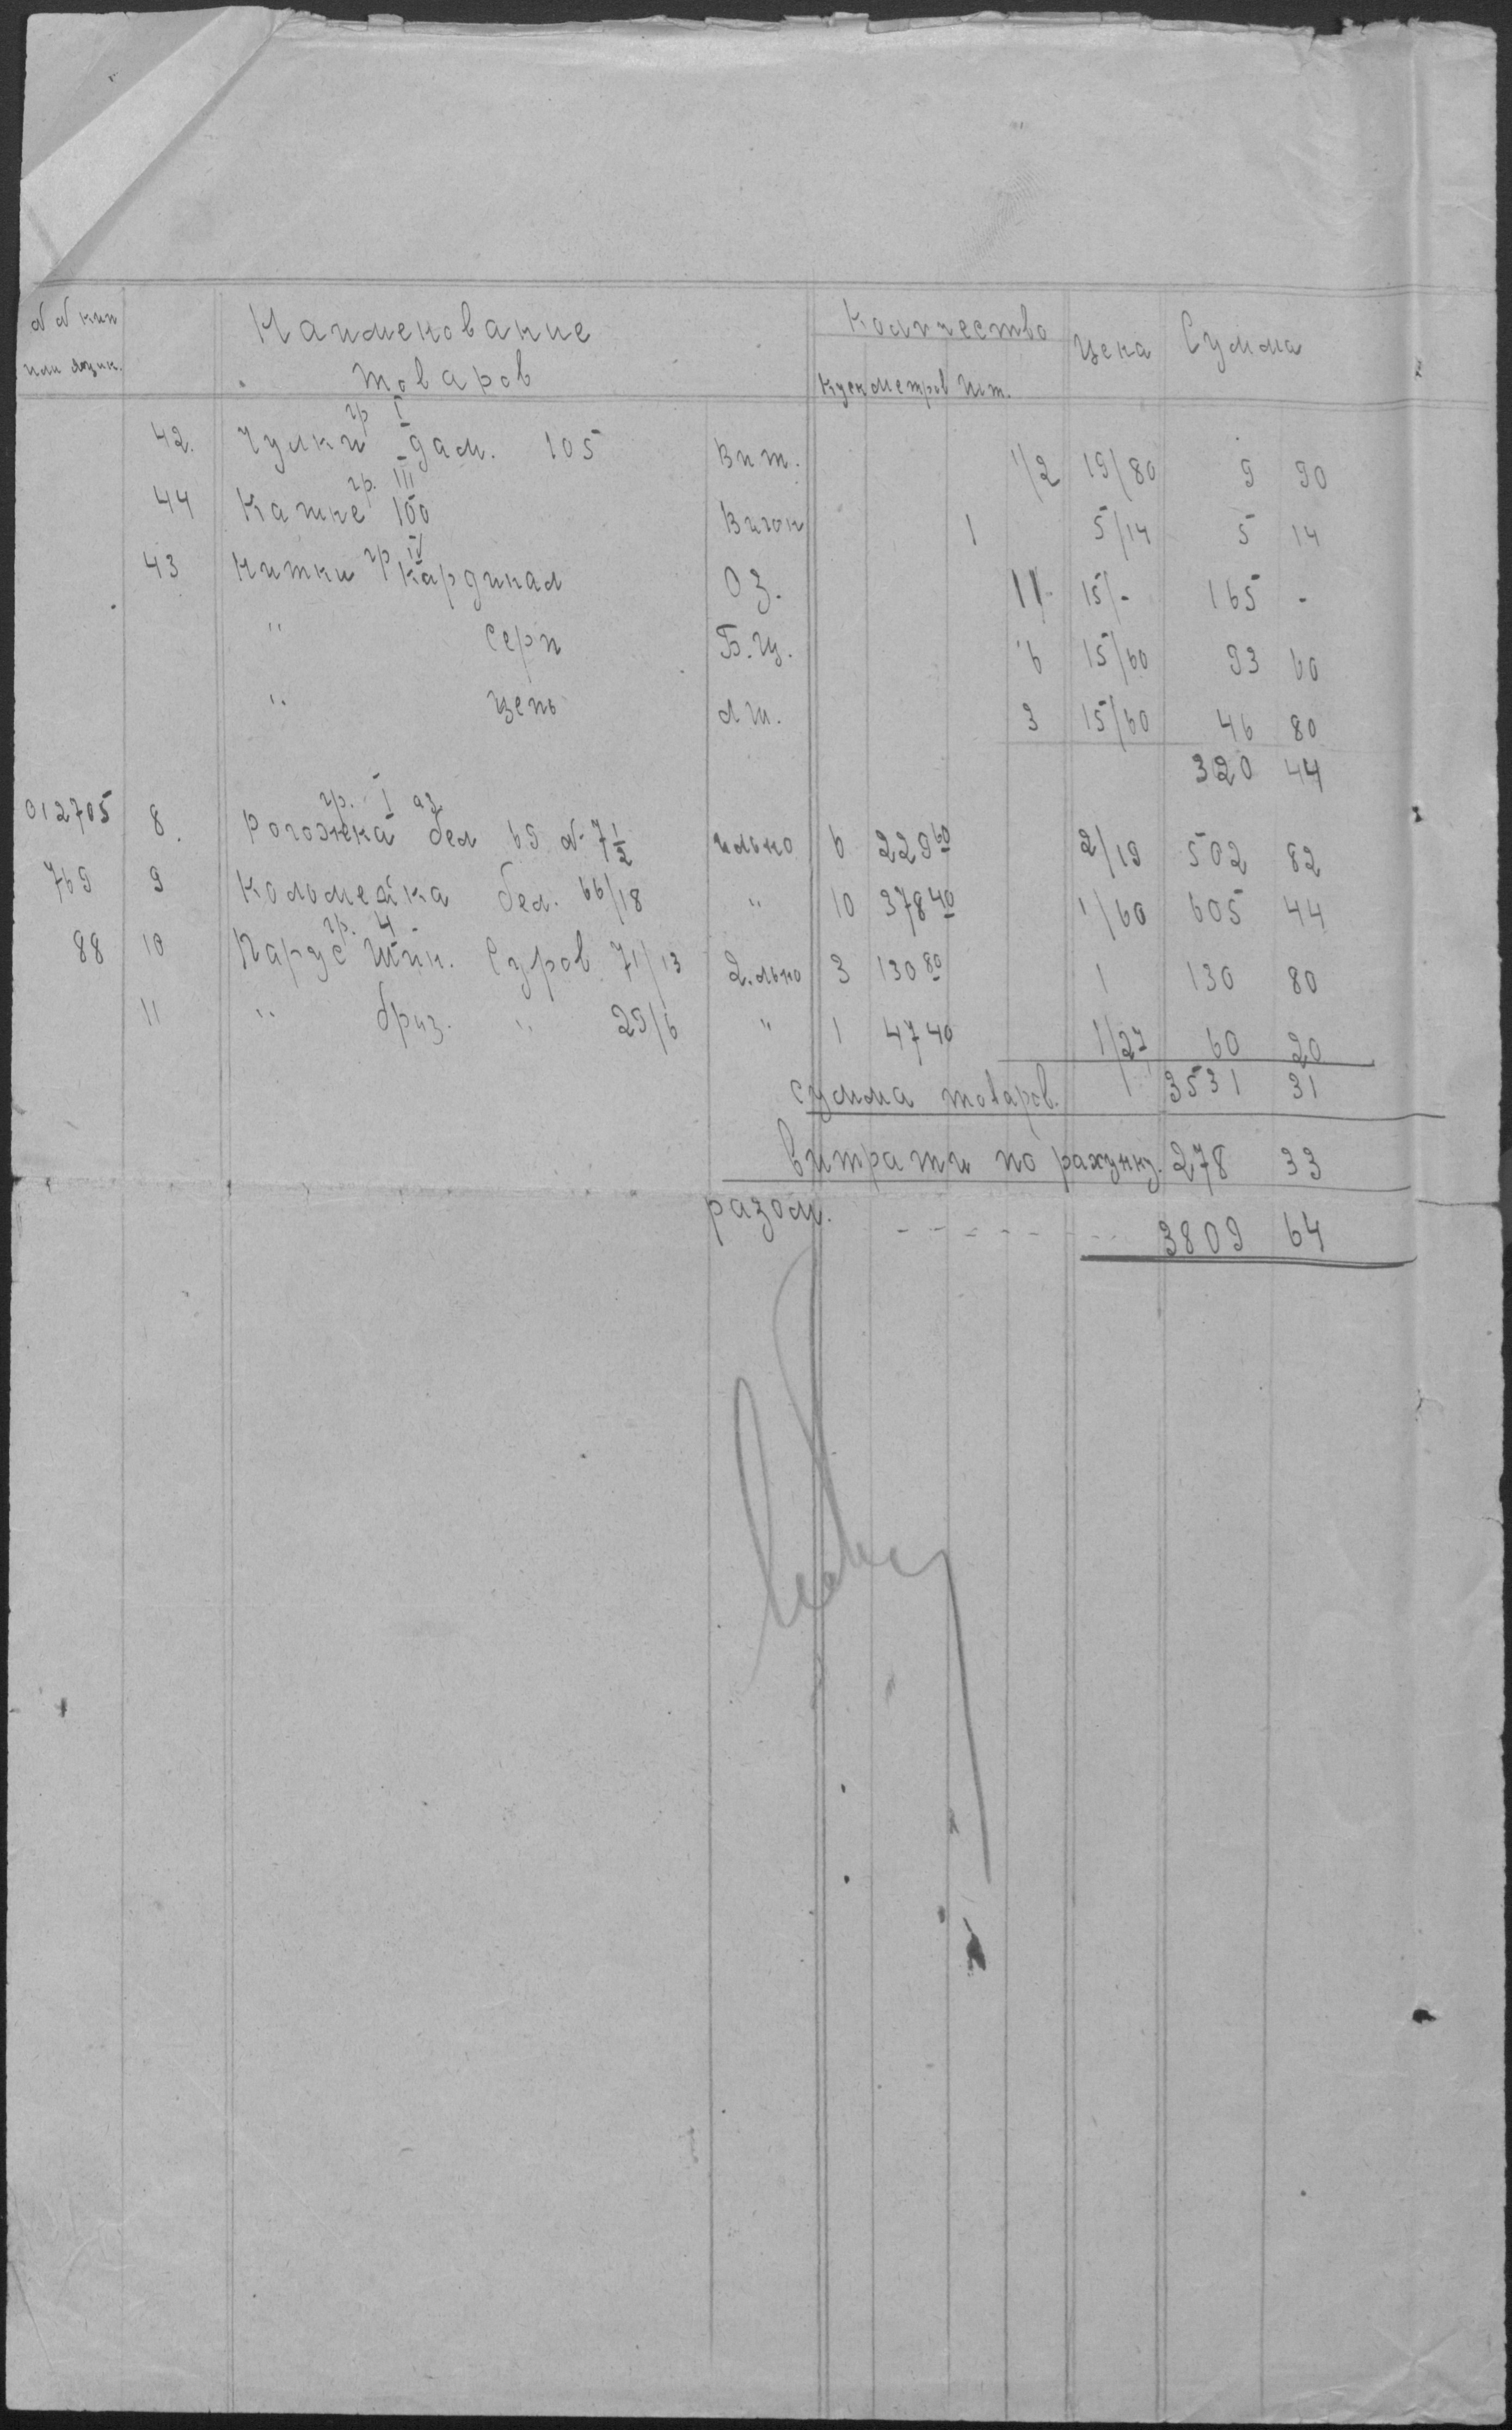 №№ кип Наименование Количество Цена Сумма
или ящик. товаров Куск метров шт.
гр I
42. Чулки дам. 105 Виг. 1/2 19/80 9 90
гр. III
44 Кашне 100 Вигон 1 5/14 5 14
гр IV
43 Нитки Кардинал Оз. 11 15/- 165 -
" Серп Б.Ц. 6 15/60 93 60
" Цепь 3 15/60 46 80
320 44
гр. I аз
012705 8. Рогожека бел 69 №7 1/2 6 229 60 2/19 502 82
769 9 Коломейка бел. 66/18 " 10 378 40 1/60 605 44
гр. 4
88 10 Парус Шин. Суров 71/13 2.льно 3 130 80 1 130 80
11 " бриз. " 29/6 " 1 47 40 1/27 60 20
Сумма товаров. 3531 31
Витрати по рахунку. 278 33
разом. - - - - - - - 3809 64